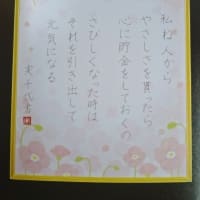 私ね 人から
やさしさを貰ったら
心に貯金をしておくの
さびしくなった時は
それを引き出して
元気になる